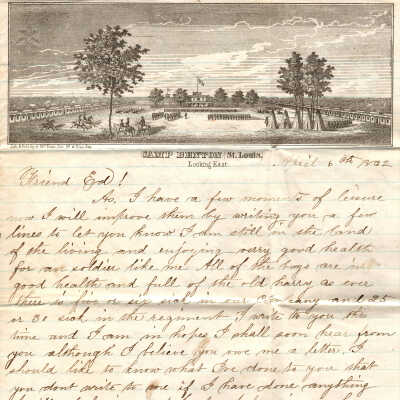 CAMP BENTON, St. Louis,
Looking East.
April 6th 1862
Friend Ed!
As I have a few moments of leisure
now I will improve them by writing you a few
lines to let you know I am still in the land
of the living and enjoying very good health
for an soldier like me All of the boys are in
good health and full of the old harry as ever
there is five or six sick in our Company and 25
or 30 sick in the regiment I write to you this
time and I am in hopes I shall soon hear from
you although I believe you owe me a letter. I
should like to know what I've done to you that
you dont write to me if I have done anything